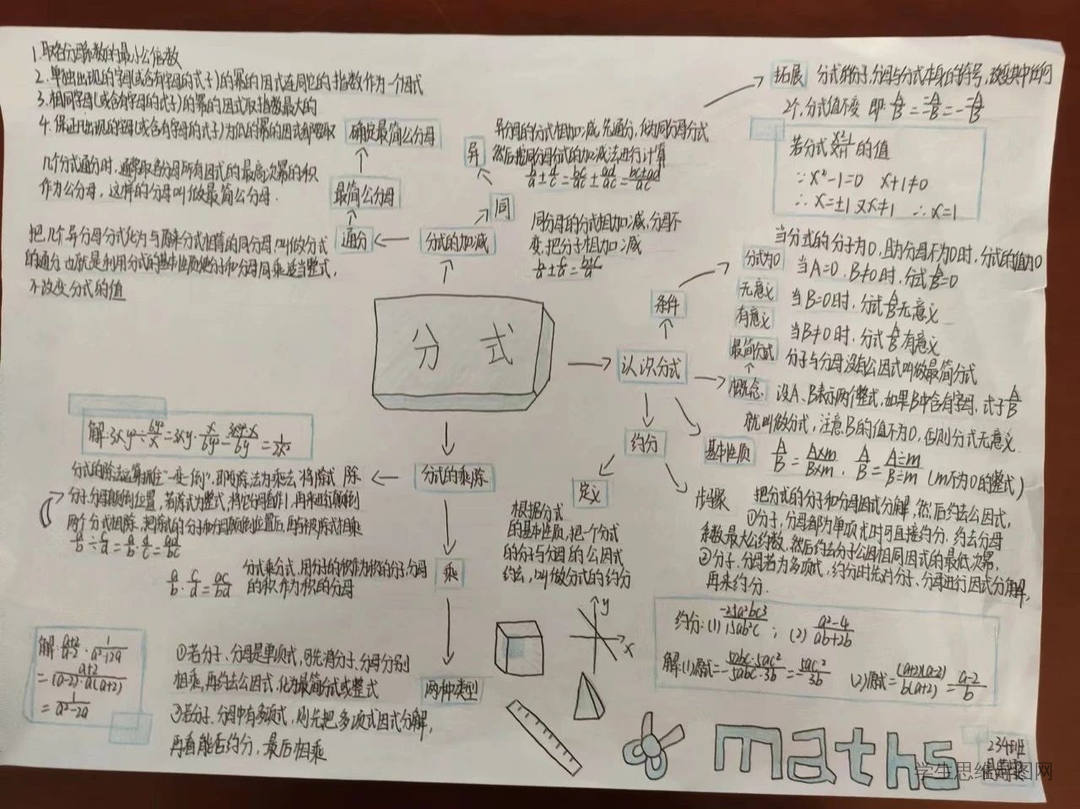 1.取各分母系数的最小公倍数
2.单独出现的字母(或含有字母的式子)的幂的因式连同它的指数作为一个因式
3.相同字母(或含有字母的式子)的幂的因式取指数最大的
4.保证凡出现的字母(或含有字母的式子)为底的幂的因式都要取
确定最简公分母
几个分式通分时,通常取各分母所有因式的最高次幂的积
作为公分母,这样的分母叫做最简公分母.
最简公分母
把几个异分母分式化为与原来分式相等的同分母,叫做分式
的通分 也就是利用分式的基本性质使分子和分母同乘适当整式,
不改变分式的值
通分
分式的加减
异
异分母的分式相加减,先通分,化为同分母分式
然后按同分母分式的加减法进行计算
b/a ± d/c = bc/ac ± ad/ac = bc±ad/ac
同
同分母的分式相加减,分母不
变,把分子相加减
拓展
分式的分子,分母与分式本身的符号,改变其中任何
2个,分式值不变
的值
∵x²-1=0 x+1≠0
∴x=±1又x≠-1 ∴x=1
分式
认识分式
条件
分式为0
当分式的分子为0,且分母不为0时,分式的值为0
当A=0,B≠0时,分式A/B=0
无意义
当B=0时,分式A/B无意义
有意义
当B≠0时,分式A/B有意义
最简分式
分子与分母没有公因式叫做最简分式
概念:
设A、B表示两个整式,如果B中含有字母,式子A/B
就叫做分式,注意:B的值不为0,否则分式无意义.
基本性质
A/B = A×m/B×m, A/B = A÷m/B÷m (m不为0的整式)
约分
定义
根据分式
的基本性质,把一个分式
的分子与分母的公因式
约去,叫做分式的约分
步骤
把分式的分子和分母因式分解,然后约去公因式,
①分子,分母都为单项式时可直接约分,约去分母
系数最大公约数,然后约去分子分母相同因式的最低次幂,
②分子、分母若为多项式,约分时先对分子、分母进行因式分解,
再来约分.
约分:(1) -25a²bc3/15ab²c ; (2) a²-4/ab+2b
解:(1)原式= -5abc·5ac²/5abc·3b = 5ac²/3b (2)原式= (a+2)(a-2)/b(a+2) = a-2/b
分式的乘除
除
两个分式相除,把除式的分子和分母颠倒位置后,再与被除式相乘
a/b ÷ c/d = a/b · d/c = ad/bc
乘
分式乘分式,用分子的积作为积的分子,分母
的积作为积的分母
a/b · c/d = ac/bd
两种类型
①若分子、分母是单项式,可先将分子、分母分别
相乘,再约去公因式,化为最简分式或整式
②若分子、分母中有多项式,则先把多项式因式分解,
再看能否约分,最后相乘
解:a+2/a-2 · 1/a²+2a
= a+2/(a-2)·a(a+2)
= 1/a²-2a
y
x
maths
234班
学生思维导图网